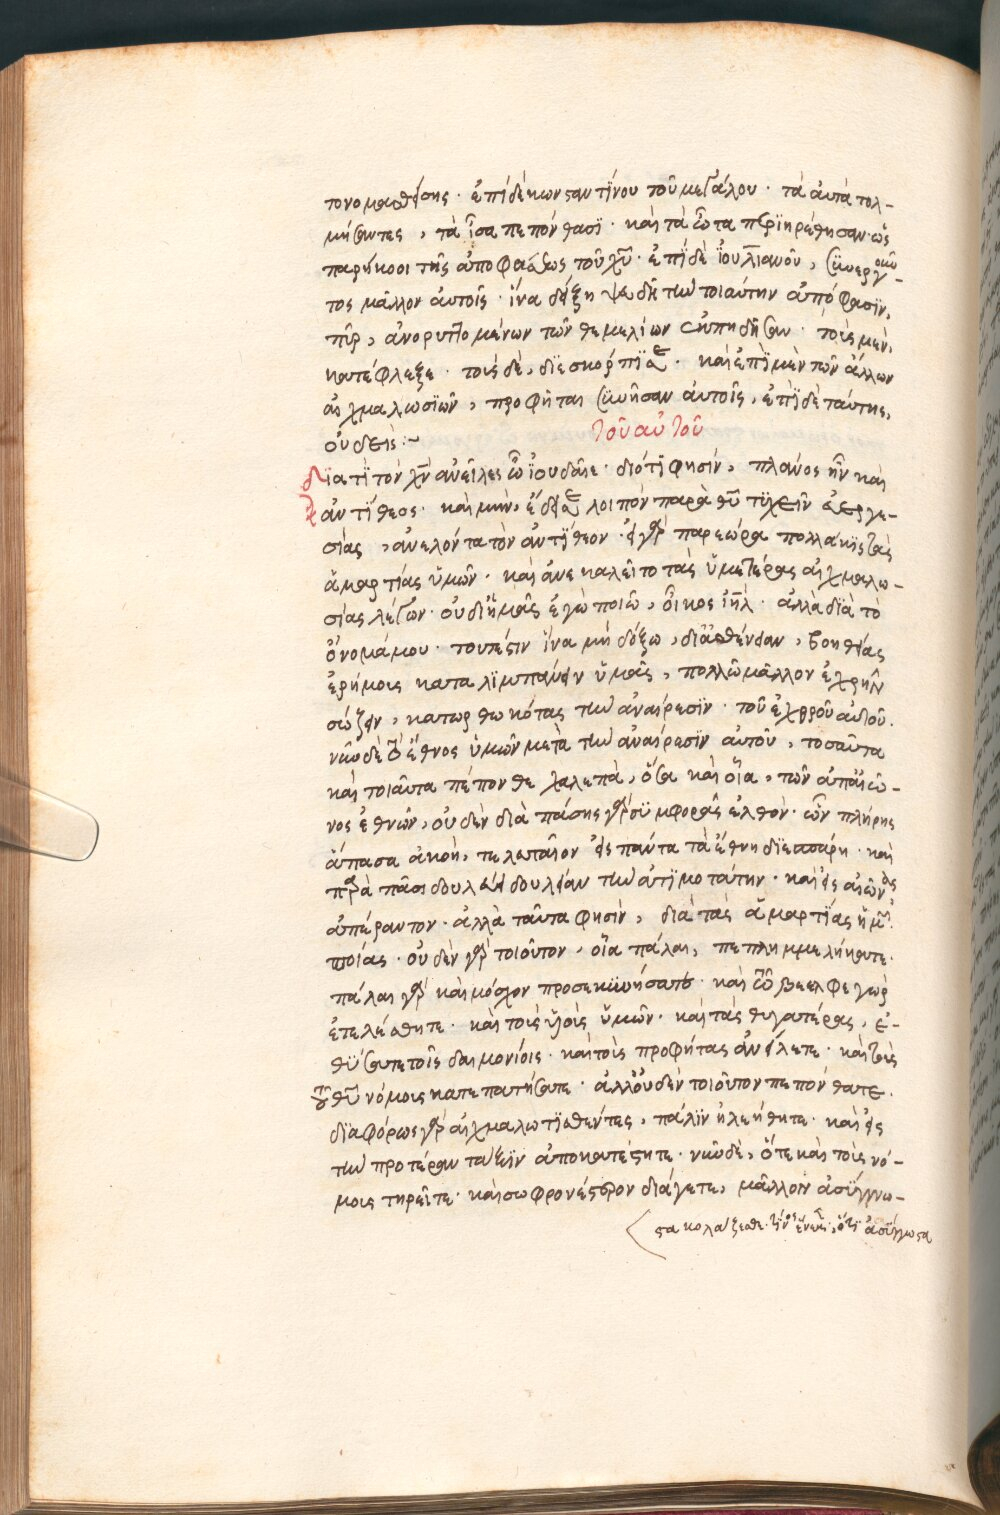 τονομασθείσης · ἐπὶ δὲ κωνσταντίνου τοῦ μεγάλου · τὰ αὐτὰ τολ-
μήσαντες, τὰ ἴσα πεπόνθασϊ · καὶ τὰ ὦτα περϊῃρέθησαν · ὡς
παρήκοοι τῆς ἀποφάσεως τοῦ χῦ · ἐπὶ δὲ ἰουλϊανοῦ, συνεργοῦν-
τος μᾶλλον αὐτοῖς · ἵνα δείξῃ ψευδῆ τὴν τοιαύτην ἀπόφασϊν,
πῦρ, ἀνορυττομένων τῶν θεμελίων ἐκπηδῆσαν · τοὺς μὲν,
κατέφλεξε · τοὺς δὲ, διεσκόρπϊσε · καὶ ἐπὶ μὲν τῶν ἄλλων
αἰχμαλωσϊῶν, προφῆται συνῆσαν αὐτοῖς, ἐπϊ δὲ ταύτης,
οὐδείς :~
τοῦ αὐτοῦ
Διατϊ τὸν χν ἀνεῖλες ὦ ἰουδαῖε · διότϊ φησϊν, πλάνος ἦν καὶ
ἀντίθεος · καὶ μὴν, ἔδει σε λοιπὸν παρὰ θυ τϋχεῖν εὐεργε-
σίας, ἀνελόντα τὸν ἀντίθεον · εἰ γὰρ παρεώρα πολλάκϊς τὰς
ἁμαρτίας ὑμῶν · καὶ ἀνεκαλεῖτο τὰς ὑμετέρας αἰχμαλω-
σίας λέγων · οὐ δι ἡμᾶς ἐγὼ ποιῶ, οἶκος ιηλ · ἀλλὰ δϊὰ τὸ
ὄνομά μου · τουτέστιν ἵνα μὴ δόξω, δι ἀσθένειαν, βοηθείας
ἐρήμους καταλϊμπάνειν ὑμᾶς, πολλῶ μᾶλλον ἐχρῆν
σώζειν, κατωρθωκότας τὴν ἀναίρεσϊν · τοῦ ἐχθροῦ αὐτοῦ.
νῦν δὲ τὸ ἔθνος ὑμῶν μετὰ τὴν ἀναίρεσϊν αὐτοῦ, τοσαῦτα
καὶ τοιαῦτα πέπονθε χαλεπὰ, ὅσα καὶ οἷα, τῶν ἀπ αἰῶ-
νος ἐθνῶν, οὐδὲν διὰ πάσης γὰρ συμφορᾶς ἐλθὸν · ὧν πλήρης
ἅπασα ἀκοὴ, τελευταῖον εἰς πάντα τὰ ἔθνη διεσπάρη · καὶ
παρὰ πᾶσι δουλεύει δουλείαν τὴν ἀτϊμοτάτην · καὶ εἰς αἰῶνας
ἀπέραντον · ἀλλὰ ταῦτα φησὶν, διὰ τὰς ἁμαρτϊας ἡμῶν ·
ποίας · οὐδὲν γὰρ τοιοῦτον, οἷα πάλαι, πεπλημμελήκατε ·
πάλαι γὰρ καὶ μόσχον προσεκυνήσατε · καὶ τῶ βεελφεγὼρ
ἐτελέσθητε · καὶ τοὺς υἱοὺς ὑμῶν · καὶ τὰς θυγατέρας, ἐ-
θύσατε τοῖς δαιμονίοις · καὶ τοὺς προφήτας ἀνείλετε · καὶ τοὺς
τοῦ θυ νόμους κατεπατήσατε · ἀλλ οὐδὲν τοιοῦτον πεπόνθατε.
δϊαφόρως γὰρ αἰχμαλωτϊσθέντες, πάλϊν ἠλεήθητε · καὶ εἰς
τὴν προτέραν τάξϊν ἀποκατέστητε · νῦν δὲ, ὅτε καὶ τοὺς νό-
μους τηρεῖτε · καὶ σωφρονέστερον διάγετε, μᾶλλον ἀσϋγγνω-
στα κολάζεσθε · τίνος ἕνεκεν, ὅτϊ ἀσϋγγωστα